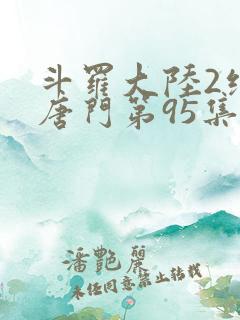 斗羅大陸2絕
唐門第95集
潘艷麗
未经同意禁止转载